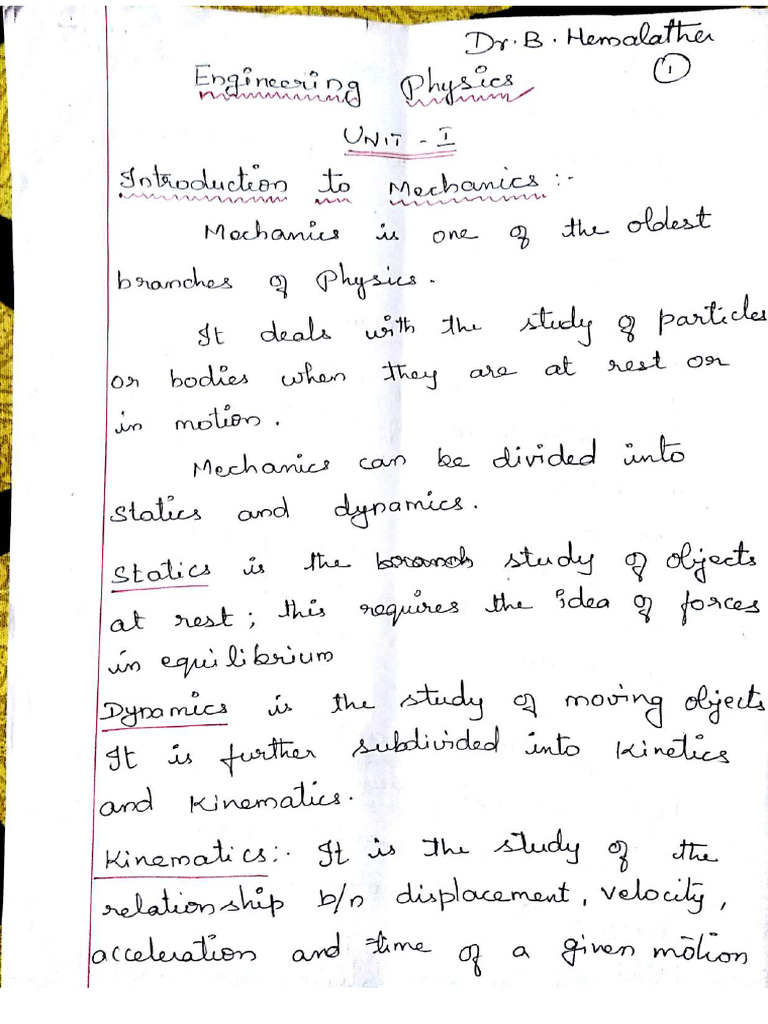 Dr. B. Hemalatha
1
Engineering Physics
UNIT - I
Introduction to Mechanics :-
Mechanics is one of the oldest
branches of Physics.
It deals with the study of particles
or bodies when they are at rest or
in motion.
Mechanics can be divided into
statics and dynamics.
Statics is the branch study of objects
at rest; this requires the idea of forces
in equilibrium
Dynamics is the study of moving objects
It is further subdivided into Kinetics
and Kinematics.
Kinematics:- It is the study of the
relationship b/n displacement, velocity,
acceleration and time of a given motion